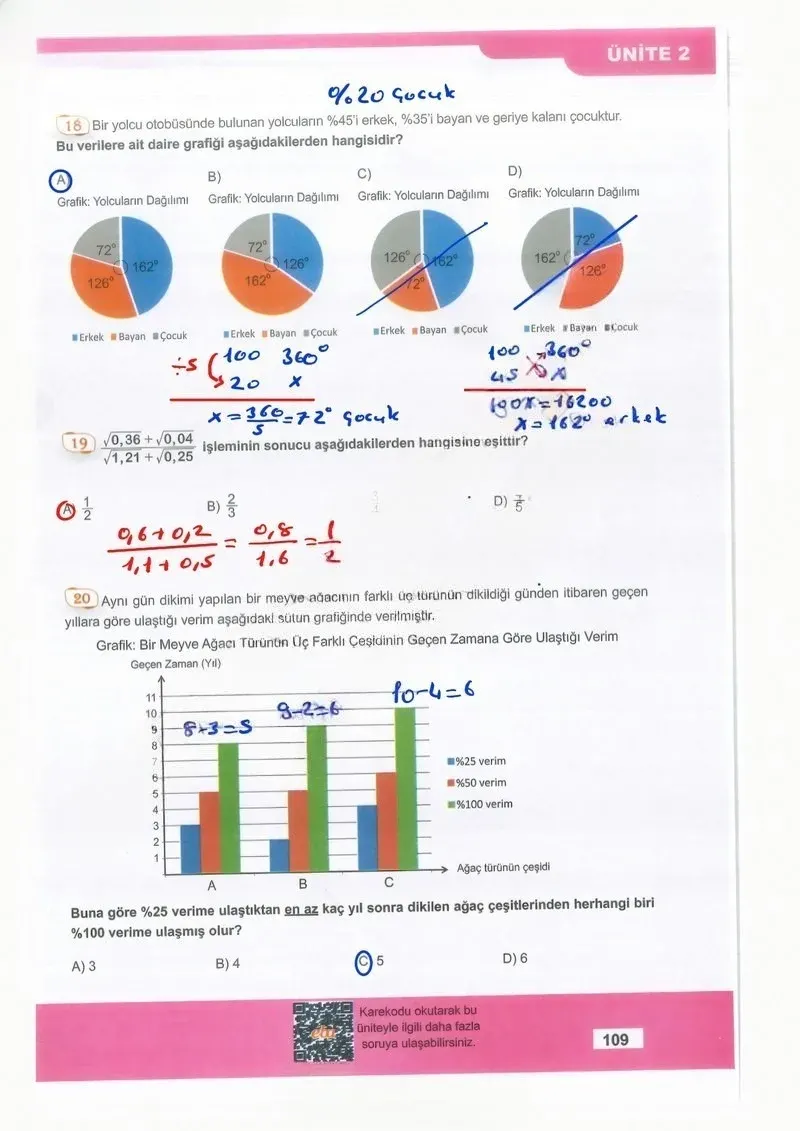 ÜNİTE 2
%20 Çocuk
18 Bir yolcu otobüsünde bulunan yolcuların %45'i erkek, %35'i bayan ve geriye kalanı çocuktur.
Bu verilere ait daire grafiği aşağıdakilerden hangisidir?
A B) C) D)
Grafik: Yolcuların Dağılımı Grafik: Yolcuların Dağılımı Grafik: Yolcuların Dağılımı Grafik: Yolcuların Dağılımı
72° 162° 126°
72° 126° 162°
126° 162° 72°
162° 72° 126°
Erkek Bayan Çocuk Erkek Bayan Çocuk Erkek Bayan Çocuk Erkek Bayan Çocuk
÷5 100 360°
20 x
x = 360/5 = 72° Çocuk
100 360°
45 x
100x = 16200
x = 162° erkek
19 √0,36 + √0,04 / √1,21 + √0,25 işleminin sonucu aşağıdakilerden hangisine eşittir?
A 1/2 B) 2/3 D) 7/5
0,6 + 0,2 / 1,1 + 0,5 = 0,8 / 1,6 = 1/2
20 Aynı gün dikimi yapılan bir meyve ağacının farklı üç türünün dikildiği günden itibaren geçen
yıllara göre ulaştığı verim aşağıdaki sütun grafiğinde verilmiştir.
Grafik: Bir Meyve Ağacı Türünün Üç Farklı Çeşidinin Geçen Zamana Göre Ulaştığı Verim
Geçen Zaman (Yıl)
8-3=5
9-2=6
10-4=6
11
10
9
8
7
6
5
4
3
2
1
%25 verim
%50 verim
%100 verim
Ağaç türünün çeşidi
A B C
Buna göre %25 verime ulaştıktan en az kaç yıl sonra dikilen ağaç çeşitlerinden herhangi biri
%100 verime ulaşmış olur?
A) 3 B) 4 C 5 D) 6
Karekodu okutarak bu
üniteyle ilgili daha fazla
soruya ulaşabilirsiniz.
109